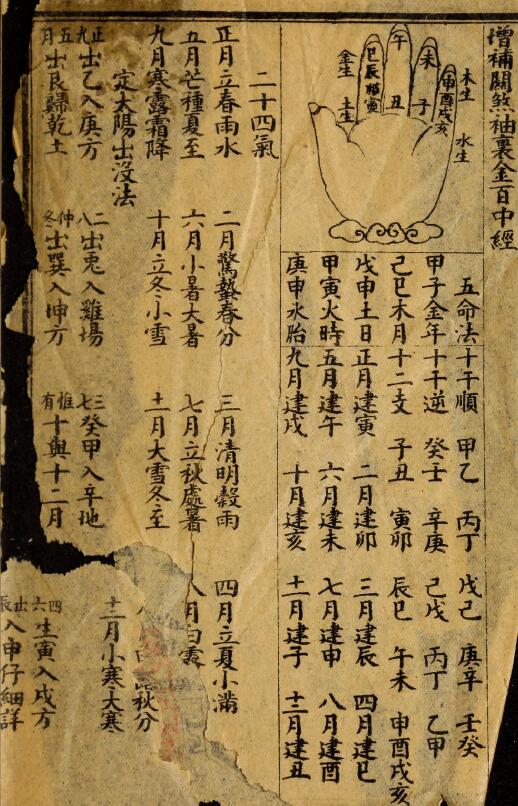 增補關煞袖裏金百中經
木生
水生
申酉戌亥
未 子
午 丑
巳辰卯寅
金生
土生
五命法 十干順 甲乙 丙丁 戊己 庚辛 壬癸
甲子金年 十干逆 癸壬 辛庚 己戊 丙丁 乙甲
己巳木月 十二支 子丑 寅卯 辰巳 午未 申酉戌亥
戊申土日 正月建寅 二月建卯 三月建辰 四月建巳
甲寅火時 五月建午 六月建未 七月建申 八月建酉
庚申水胎 九月建戌 十月建亥 十一月建子 十二月建丑
二十四氣
正月立春雨水 二月驚蟄春分 三月清明穀雨 四月立夏小滿
五月芒種夏至 六月小暑大暑 七月立秋處暑 八月白露
秋分
九月寒露霜降 十月立冬小雪 十一月大雪冬至 十二月小寒大寒
定太陽出沒法
正九出乙入庚方 二八出兎入雞場 三七癸甲入辛地 四六生寅入戌方
五月出艮歸乾土 仲冬出巽入坤方 惟有十與十二月 出辰入申仔細詳